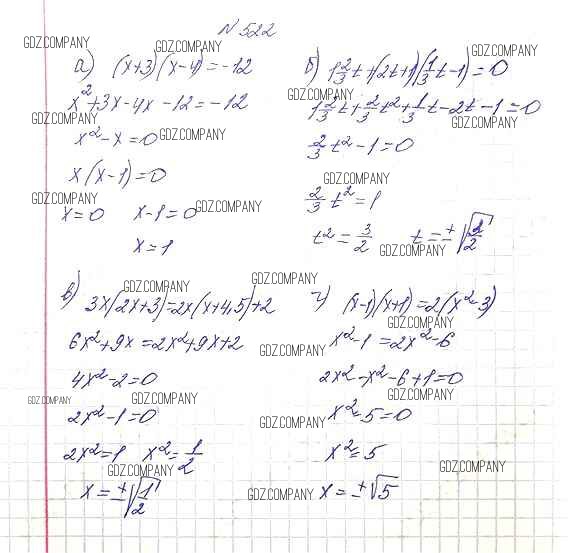 N 522
GDZ.COMPANY GDZ.COMPANY GDZ.COMPANY
а) (x+3)(x-4)=-12
x²+3x-4x-12=-12
GDZ.COMPANY
x²-x=0 GDZ.COMPANY
x(x-1)=0
GDZ.COMPANY
x=0 x-1=0 GDZ.COMPANY
x=1
б) 1 2/3 t+(2t+1)(1/3 t-1)=0
GDZ.COMPANY
1 2/3 t+2/3 t²+1/3 t-2t-1=0
GDZ.COMPANY
2/3 t²-1=0
GDZ.COMPANY
2/3 t²=1
t²=3/2 t=±√
GDZ.COMPANY
GDZ.COMPANY GDZ.COMPANY
в) 3x(2x+3)=2x(x+4,5)+2
6x²+9x=2x²+9x+2
4x²-2=0
GDZ.COMPANY GDZ.COMPANY
2x²-1=0
2x²=1 x²=1/2
GDZ.COMPANY
x=±√1/2
г) (x-1)(x+1)=2(x²-3)
GDZ.COMPANY
x²-1=2x²-6
GDZ.COMPANY
2x²-x²-6+1=0
x²-5=0
GDZ.COMPANY
x²=5
GDZ.COMPANY
GDZ.COMPANY x=±√5